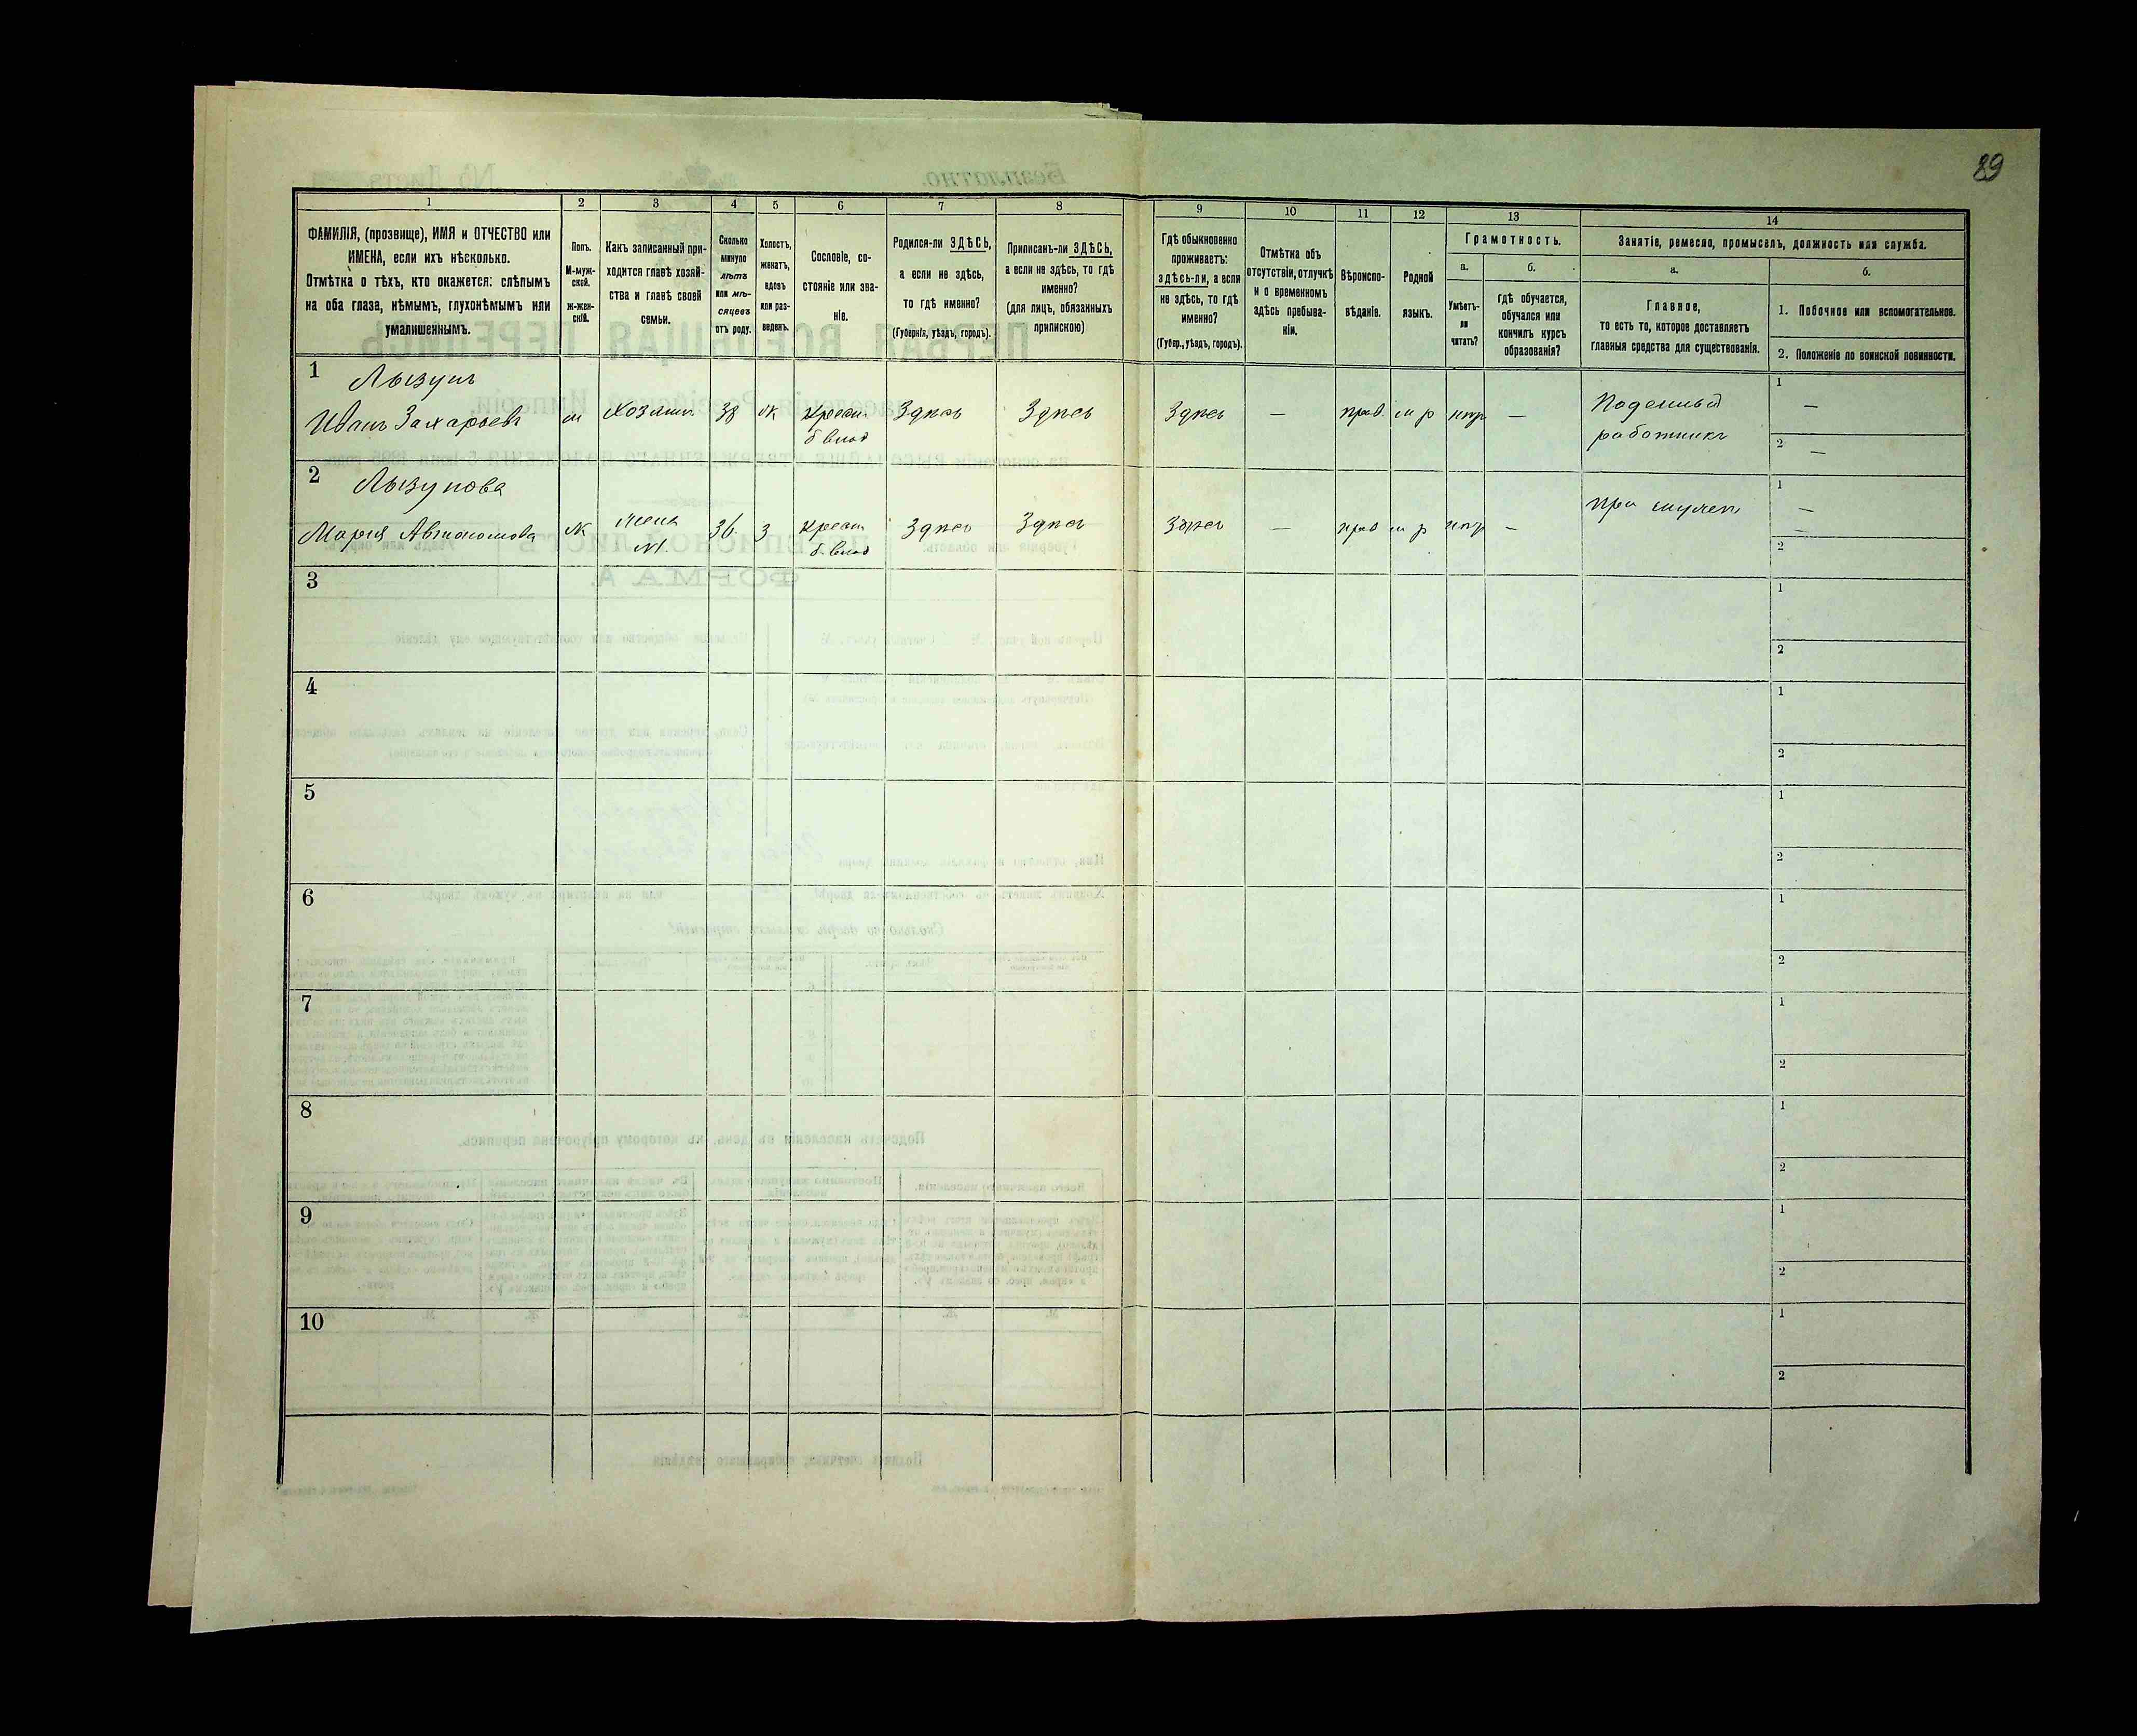 89
1
2
3
4
5
6
7
8
9
10
11
12
13
14
ФАМИЛІЯ, (прозвище), ИМЯ и ОТЧЕСТВО или
ИМЕНА, если ихъ нѣсколько.
Отмѣтка о тѣхъ, кто окажется: слѣпымъ
на оба глаза, нѣмымъ, глухонѣмымъ или
умалишеннымъ.
Полъ.
М-муж-
ской.
ж-жен-
скій.
Какъ записанный при-
ходится главѣ хозяй-
ства и главѣ своей
семьи.
Сколько
минуло
лѣтъ
или мѣ-
сяцевъ
отъ роду.
Холостъ,
женатъ,
вдовъ
или раз-
веденъ.
Сословіе, со-
стояніе или зва-
ніе.
Родился-ли ЗДѢСЬ,
а если не здѣсь,
то гдѣ именно?
(Губернія, уѣздъ, городъ).
Приписанъ-ли ЗДѢСЬ,
а если не здѣсь, то гдѣ
именно?
(для лицъ, обязанныхъ
припискою)
Гдѣ обыкновенно
проживаетъ:
здѣсь-ли, а если
не здѣсь, то гдѣ
именно?
(Губер., уѣздъ, городъ).
Отмѣтка объ
отсутствіи, отлучкѣ
и о временномъ
здѣсь пребыва-
ніи.
Вѣроиспо-
вѣданіе.
Родной
языкъ.
Грамотность.
а.
Умѣетъ-
ли
читать?
б.
гдѣ обучается,
обучался или
кончилъ курсъ
образованія?
Занятіе, ремесло, промыселъ, должность или служба.
а.
Главное,
то есть то, которое доставляетъ
главныя средства для существованія.
б.
1. Побочное или вспомогательное.
2. Положеніе по воинской повинности.
1
Лызунъ
Иванъ Захарьевъ
м
хозяинъ
38
ж
крест.
б влад
Здѣсь
Здѣсь
Здѣсь
—
прав.
м р
нтр
—
Поденный
работникъ
1
—
2
—
2
Лызунова
Марія Автономова
ж
жена
№1.
36.
з
крест
б. влад
Здѣсь
Здѣсь
Здѣсь
—
прав
м р
нтр
—
при мужѣ
1
—
—
2
3
1
2
4
1
2
5
1
2
6
1
2
7
1
2
8
1
2
9
1
2
10
1
2